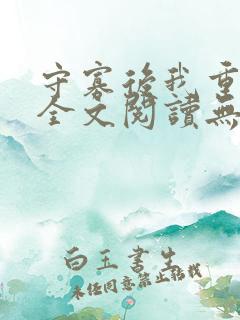 守寡後我重
全文閱讀無
白玉書生
未經同意禁止轉載